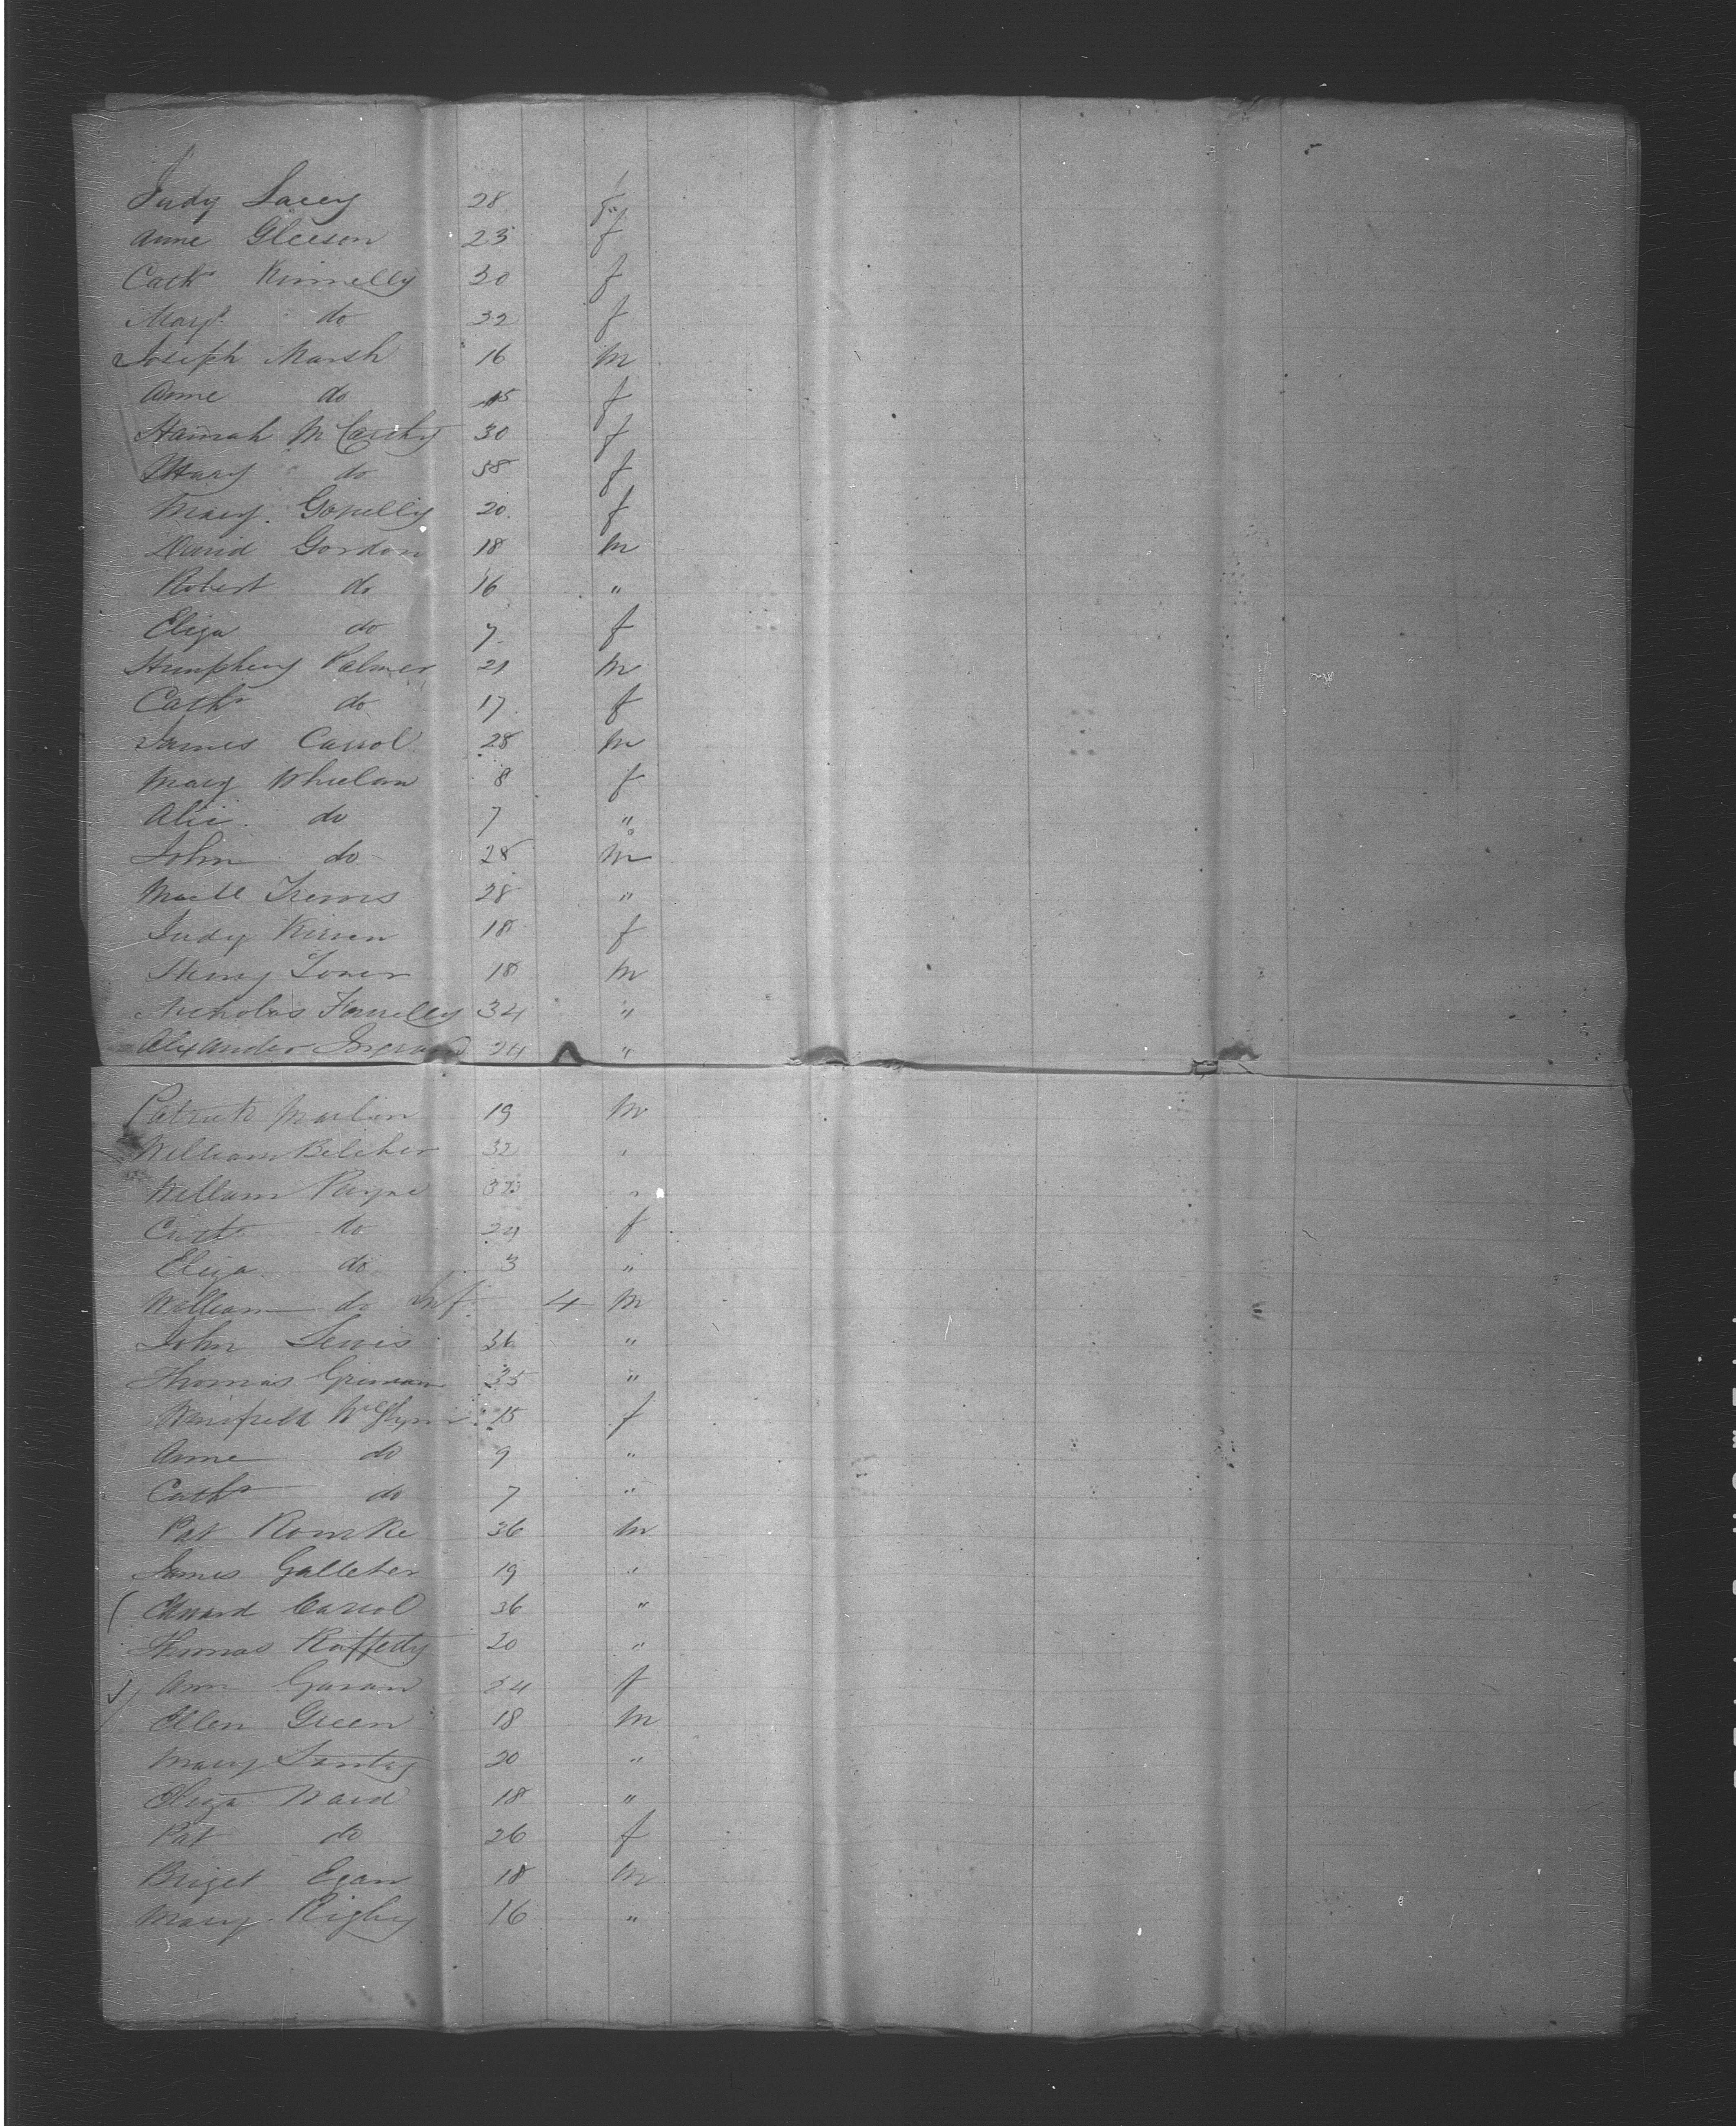 Judy Lacey 28 f
Anne Gleeson 23 f
Cath Kinnelly 30 f
Mary do 32 f
Joseph Marsh 16 m
Anne do 15 f
Hannah McCarthy 30 f
Mary do 38 f
Mary 20 f
David Gordon 18 m
Robert do 16 "
Eliza do 7 f
Humphrey Palmer 21 m
Cath do 17 f
James Carrol 28 m
Mary Whelan 8 f
Alic do 7 "
John do 28 m
28 "
Judy Kirvan 18 f
Henry 18 m
Nicholas Fannelly 34 "
Alexander Ingram 24 "
Patrick Martin 19 m
William Belcher 32 "
William Payne "
do 24 f
Eliza do 3 "
William do Inf 4 m
John Lewis 36 "
Thomas 35 "
McGlynn 15 f
Anne do 9 "
Cath do 7 "
Pat Rourke 36 m
James Galleher 19 "
Edward Carrol 36 "
Thomas Rafferty 20 "
Ann Gavan 24 f
Ellen Green 18 m
Mary 20 "
Eliza Ward 18 "
Pat do 26 f
Briget Egan 18 m
Mary Rigby 16 "